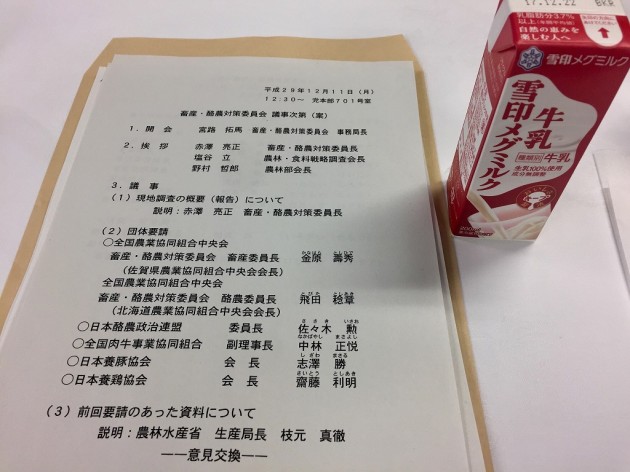 平成29年12月11日（月）
12:30～ 党本部701号室
畜産・酪農対策委員会 議事次第（案）
1．開 会 宮路 拓馬 畜産・酪農対策委員会 事務局長
2．挨 拶 赤澤 亮正 畜産・酪農対策委員長
塩谷 立 農林・食料戦略調査会長
野村 哲郎 農林部会長
3．議 事
（1）現地調査の概要（報告）について
説明：赤澤 亮正 畜産・酪農対策委員長
（2）団体要請
○全国農業協同組合中央会
畜産・酪農対策委員会 畜産委員長 金原 壽秀
（佐賀県農業協同組合中央会会長）
全国農業協同組合中央会
畜産・酪農対策委員会 酪農委員長 飛田 稔章
とびた としあき
（北海道農業協同組合中央会会長）
○日本酪農政治連盟 委員長 佐々木 勲
ささき いさお
○全国肉牛事業協同組合 副理事長 中林 正悦
なかばやし まさよし
○日本養豚協会 会 長 志澤 勝
しざわ まさる
○日本養鶏協会 会 長 齋藤 利明
さいとう としあき
（3）前回要請のあった資料について
説明：農林水産省 生産局長 枝元 真徹
――意見交換――
17.12.22
BKR
乳脂肪分3.7%
以上
自然の恵みを
楽しむ人へ
雪印メグミルク
雪印メグミルク
牛乳
種類別 牛乳
生乳100%使用
成分無調整